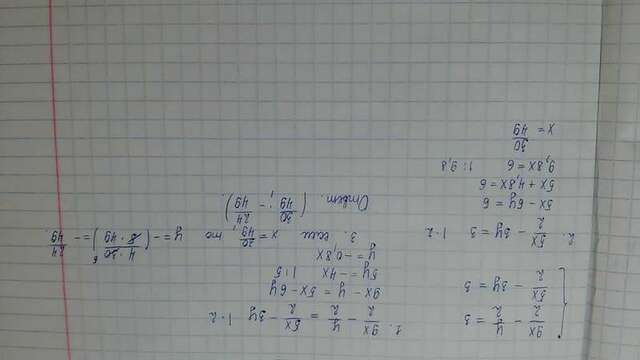 { 9x/2 - y/2 = 3
5x/2 - 3y = 3
1. 9x/2 - y/2 = 5x/2 - 3y |·2
9x - y = 5x - 6y
5y = -4x |:5
y = -0,8x
2. 5x/2 - 3y = 3 |·2
5x - 6y = 6
5x + 4,8x = 6
9,8x = 6 |:9,8
x = 30/49
3. если x = 30/49, то y = -(4·30 6/8·49) = -24/49
Ответ. (30/49; -24/49).